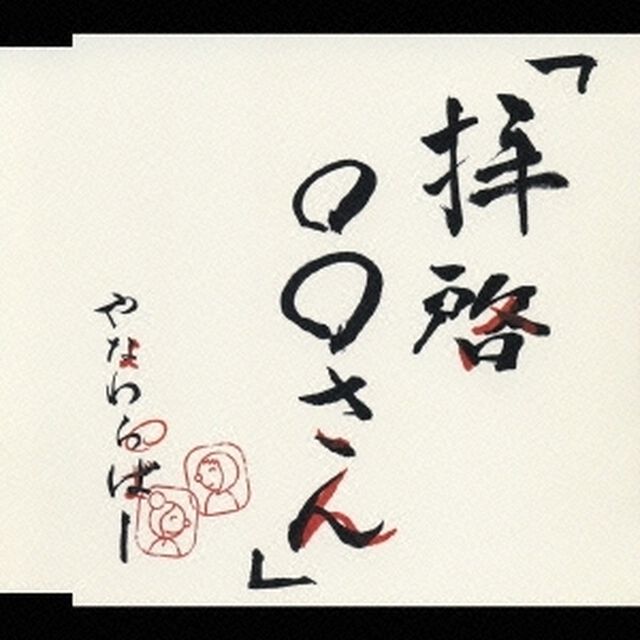 「拝啓
○○さん」
やなわらばー